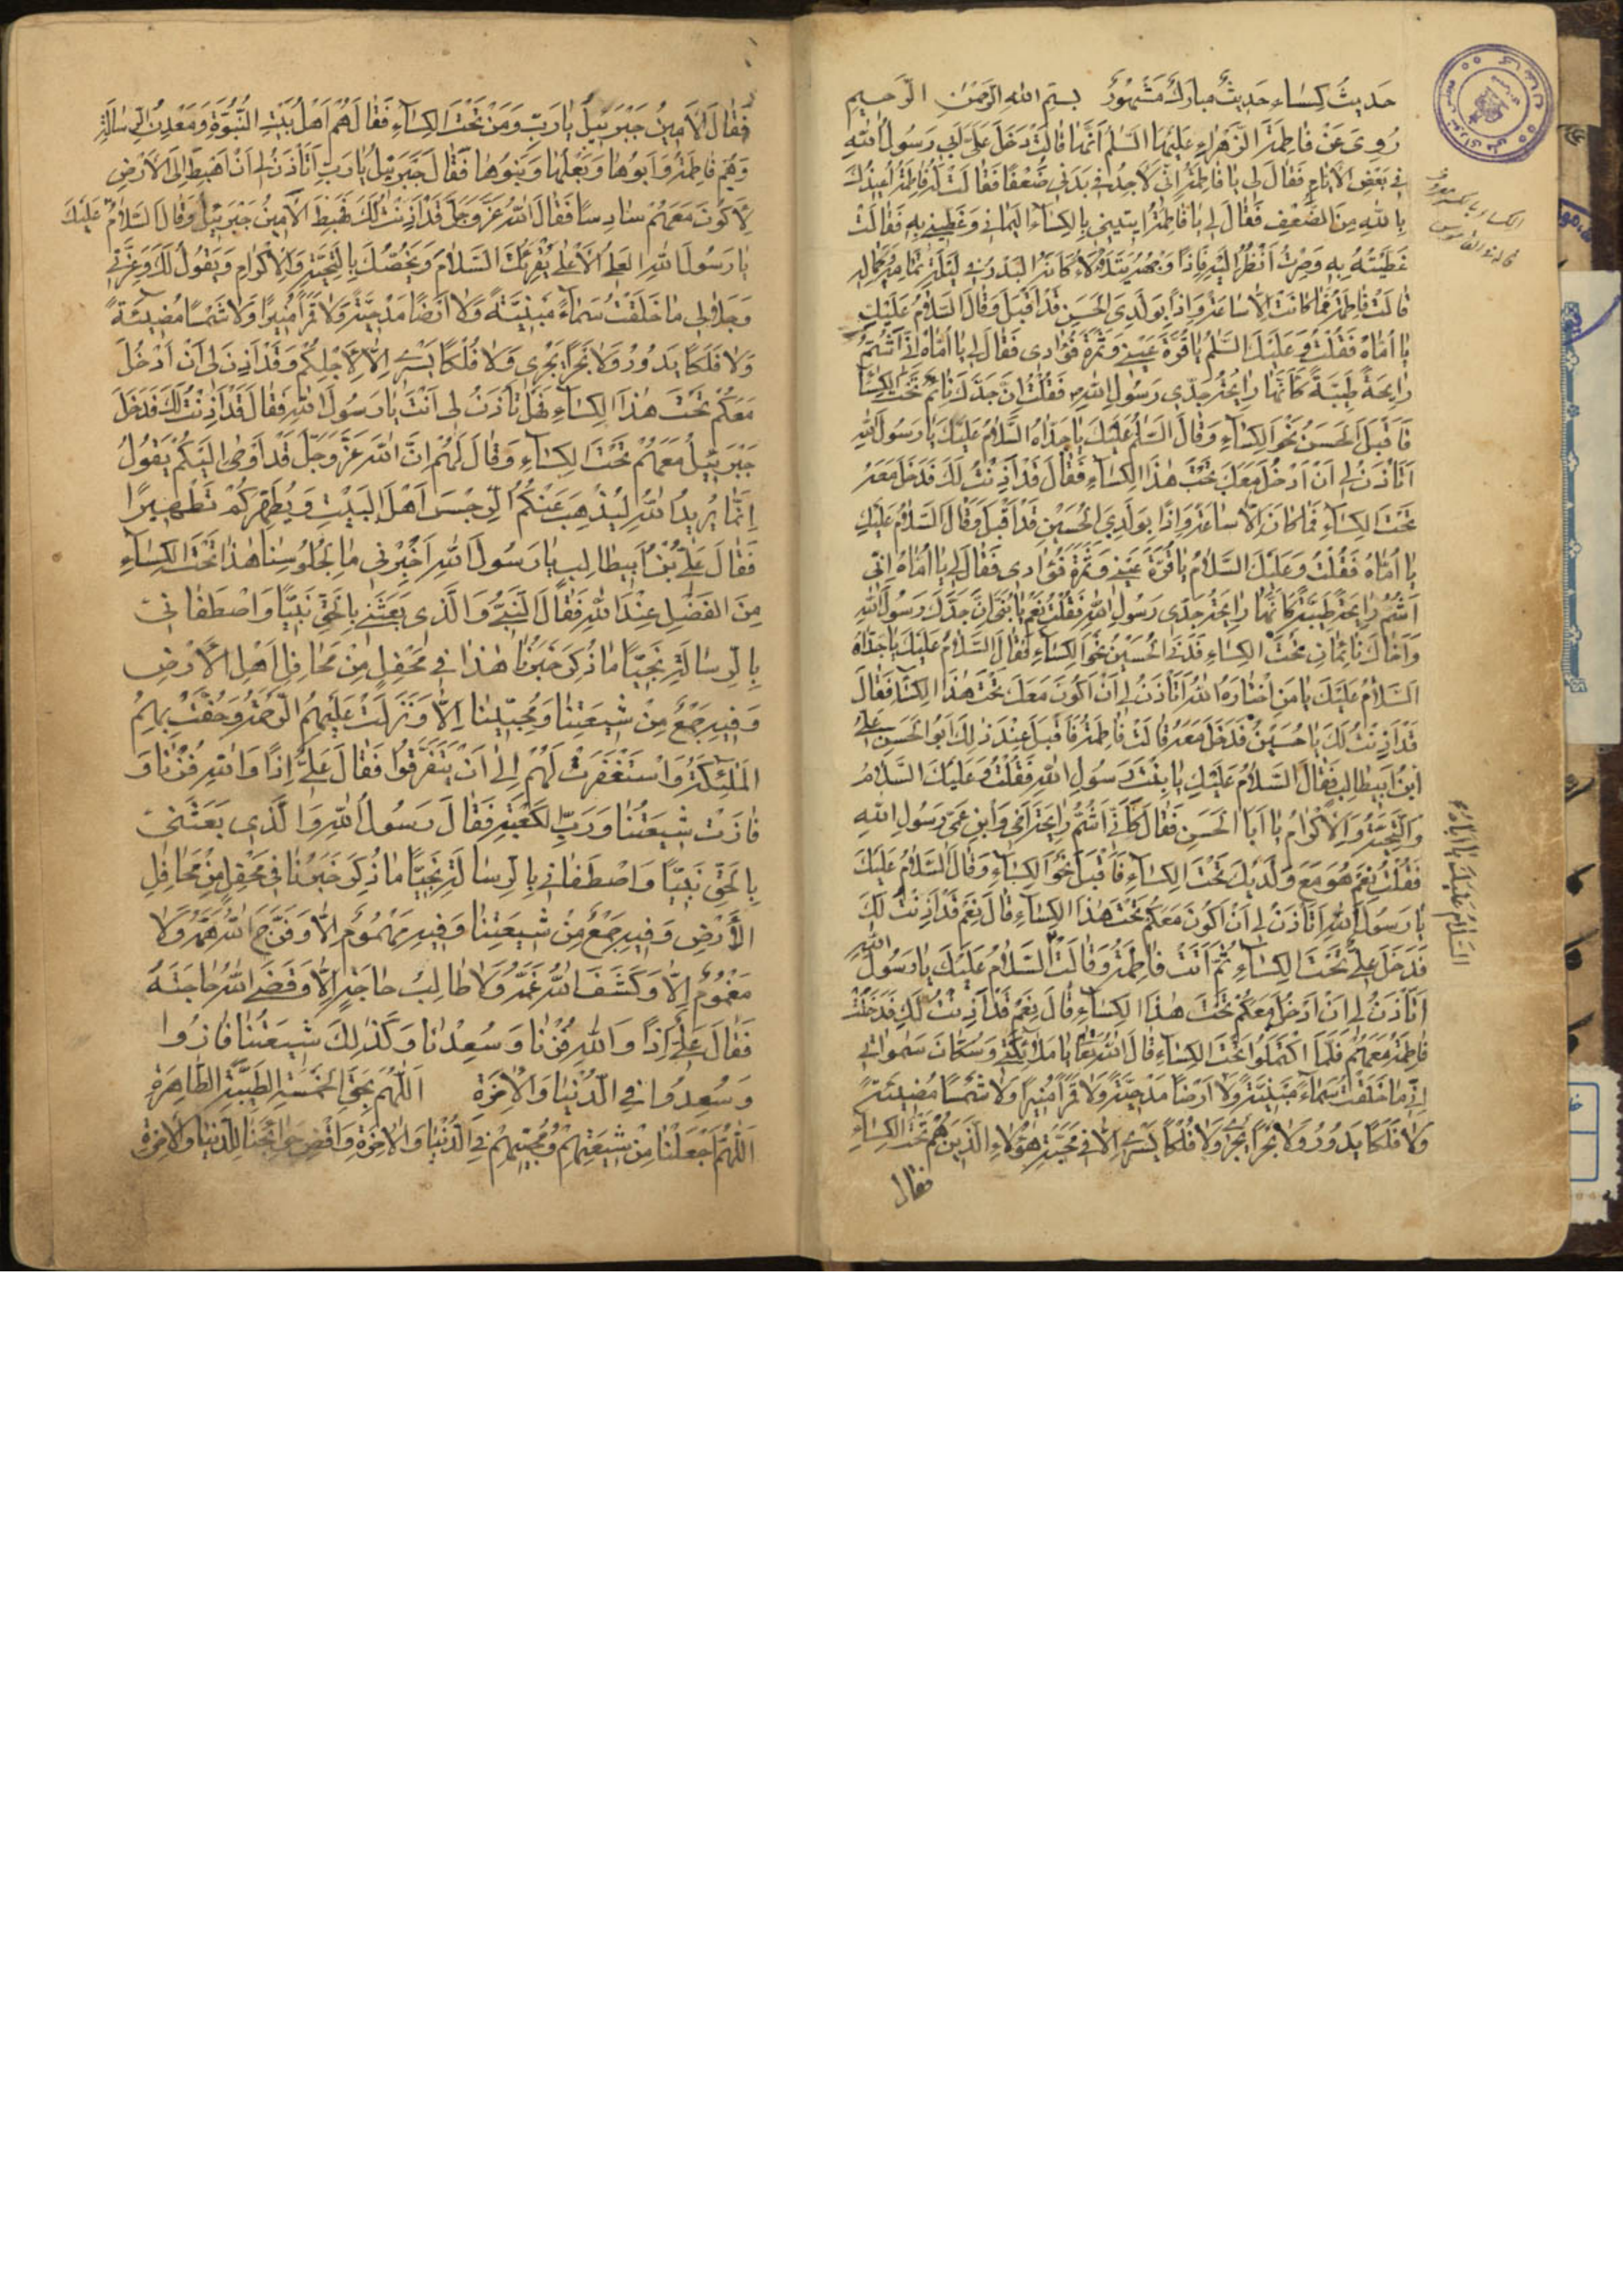 حَدیثُ کِسٰاء حَدیثٌ مبارَكٌ مَشْهُورٌ بِسْمِ اللهِ الرَّحْمٰنِ الرَّحیمِ
رُوِیَ عَنْ فاطِمَةَ الزَّهْراءِ عَلَیْهَا السَّلٰمُ اَنَّها قالَتْ دَخَلَ عَلَیَّ اَبی رَسُولُ اللهِ
فی بَعْضِ الْاَیّامِ فَقالَ لی یا فاطِمَةُ اِنّی لَاَجِدُ فی بَدَنی ضُعْفًا فَقالَتْ لَهُ فاطِمَةُ اُعیذُكَ
بِاللهِ مِنَ الضَّعْفِ فَقالَ لی یا فاطِمَةُ ایتینی بِالْکِسٰاءِ الْیَمانی وَغَطّینی بِهِ فَقالَتْ
غَطَّیْتُهُ بِهِ وَصِرْتُ اَنْظُرُ اِلَیْهِ فَاِذًا وَجْهُهُ یَتَلَاْلَاُ کَاَنَّهُ الْبَدْرُ فی لَیْلَةِ تَمامِهِ وَکَمالِهِ
قالَتْ فاطِمَةُ فَما کانَتْ اِلّا ساعَةً وَاِذًا بِوَلَدِیَ الْحَسَنِ قَدْ اَقْبَلَ وَقالَ السَّلامُ عَلَیْكِ
یا اُمّاهُ فَقُلْتُ وَعَلَیْكَ السَّلٰمُ یا قُرَّةَ عَیْنی وَثَمَرَةَ فُؤادی فَقالَ لی یا اُمّاهُ اِنّی اَشَمُّ
رایِحَةً طَیِّبَةً کَاَنَّها رایِحَةُ جَدّی رَسُولِ اللهِ فَقُلْتُ اِنَّ جَدَّكَ نائِمٌ تَحْتَ الْکِسٰاءِ
فَاَقْبَلَ الْحَسَنُ نَحْوَ الْکِسٰاءِ وَقالَ السَّلٰمُ عَلَیْكَ یا جَدّاهُ السَّلامُ عَلَیْكَ یا رَسُولَ اللهِ
اَتَاْذَنُ لی اَنْ اَدْخُلَ مَعَكَ تَحْتَ هٰذَا الْکِسٰاءِ فَقالَ قَدْ اَذِنْتُ لَكَ فَدَخَلَ مَعَهُ
تَحْتَ الْکِسٰاءِ فَما کانَ اِلّا ساعَةً وَاِذًا بِوَلَدِیَ الْحُسَیْنِ قَدْ اَقْبَلَ وَقالَ السَّلامُ عَلَیْكِ
یا اُمّاهُ فَقُلْتُ وَعَلَیْكَ السَّلامُ یا قُرَّةَ عَیْنی وَثَمَرَةَ فُؤادی فَقالَ لی یا اُمّاهُ اِنّی
اَشَمُّ رایِحَةً طَیِّبَةً کَاَنَّها رایِحَةُ جَدّی رَسُولِ اللهِ فَقُلْتُ نَعَمْ یا بُنَیَّ اِنَّ جَدَّكَ رَسُولَ اللهِ
وَاَخاكَ نائِمانِ تَحْتَ الْکِسٰاءِ فَدَنَی الْحُسَیْنُ نَحْوَ الْکِسٰاءِ فَقالَ السَّلامُ عَلَیْكَ یا جَدّاهُ
اَلسَّلامُ عَلَیْكَ یا مَنِ اخْتارَهُ اللهُ اَتَاْذَنُ لی اَنْ اَکُونَ مَعَكَ تَحْتَ هٰذَا الْکِسٰاءِ فَقالَ
قَدْ اَذِنْتُ لَكَ یا حُسَیْنُ فَدَخَلَ مَعَهُ قالَتْ فاطِمَةُ فَاَقْبَلَ عِنْدَ ذٰلِكَ اَبُوالْحَسَنِ عَلِیُّ
ابْنُ اَبیطالِبٍ فَقالَ السَّلامُ عَلَیْكِ یا بِنْتَ رَسُولِ اللهِ فَقُلْتُ وَعَلَیْكَ السَّلامُ
وَالتَّحِیَّةُ وَالْاِکْرامُ یا اَبَا الْحَسَنِ فَقالَ کَاَنّی اَشَمُّ رایِحَةَ اَخی وَابْنِ عَمّی رَسُولِ اللهِ
فَقُلْتُ نَعَمْ هُوَ مَعَ وَلَدَیْكَ تَحْتَ الْکِسٰاءِ فَاَقْبَلَ نَحْوَ الْکِسٰاءِ وَقالَ السَّلامُ عَلَیْكَ
یا رَسُولَ اللهِ اَتَاْذَنُ لی اَنْ اَکُونَ مَعَکُمْ تَحْتَ هٰذَا الْکِسٰاءِ قالَ نَعَمْ قَدْ اَذِنْتُ لَكَ
فَدَخَلَ عَلِیٌّ تَحْتَ الْکِسٰاءِ ثُمَّ اَتَتْ فاطِمَةُ وَقالَتْ السَّلامُ عَلَیْكَ یا رَسُولَ اللهِ
اَتَاْذَنُ لی اَنْ اَدْخُلَ مَعَکُمْ تَحْتَ هٰذَا الْکِسٰاءِ قالَ نَعَمْ قَدْ اَذِنْتُ لَكِ فَدَخَلَتْ
فاطِمَةُ مَعَهُمْ فَلَمَّا اکْتَمَلُوا تَحْتَ الْکِسٰاءِ قالَ اللهُ تَعا یا مَلائِکَتی وَسُکّانَ سَمٰواتی
اِنّی ما خَلَقْتُ سَماءً مَبْنِیَّةً وَلا اَرْضًا مَدْحِیَّةً وَلا قَمَرًا مُنیرًا وَلا شَمْسًا مُضیئَةً
وَلا فَلَکًا یَدُورُ وَلا بَحْرًا یَجْری وَلا فُلْکًا یَسْری اِلّا فی مَحَبَّةِ هٰؤُلاءِ الَّذینَ هُمْ تَحْتَ الْکِسٰاءِ
فقال
السَّلامُ عَلَیْكَ یا اَباهُ
فَقالَ الْاَمینُ جَبْرَئیلُ یا رَبِّ وَمَنْ تَحْتَ الْکِسٰاءِ فَقالَ هُمْ اَهْلُ بَیْتِ النُّبُوَّةِ وَمَعْدِنُ الرِّسالَةِ
وَهُمْ فاطِمَةُ وَاَبُوها وَبَعْلُها وَبَنُوها فَقالَ جَبْرَئیلُ یا رَبِّ اَتَاْذَنُ لی اَنْ اَهْبِطَ اِلَی الْاَرْضِ
لِاَکُونَ مَعَهُمْ سادِسًا فَقالَ اللهُ عَزَّ وَجَلَّ قَدْ اَذِنْتُ لَكَ فَهَبَطَ الْاَمینُ جَبْرَئیلُ وَقالَ السَّلامُ عَلَیْكَ
یا رَسُولَ اللهِ الْعَلِیُّ الْاَعْلی یُقْرِئُكَ السَّلامَ وَیَخُصُّكَ بِالتَّحِیَّةِ وَالْاِکْرامِ وَیَقُولُ لَكَ وَعِزَّتی
وَجَلالی ما خَلَقْتُ سَماءً مَبْنِیَّةً وَلا اَرْضًا مَدْحِیَّةً وَلا قَمَرًا مُنیرًا وَلا شَمْسًا مُضیئَةً
وَلا فَلَکًا یَدُورُ وَلا بَحْرًا یَجْری وَلا فُلْکًا یَسْری اِلّا لِاَجْلِکُمْ وَقَدْ اَذِنَ لی اَنْ اَدْخُلَ
مَعَکُمْ تَحْتَ هٰذَا الْکِسٰاءِ فَهَلْ تَاْذَنُ لی اَنْتَ یا رَسُولَ اللهِ فَقالَ قَدْ اَذِنْتُ لَكَ فَدَخَلَ
جَبْرَئیلُ مَعَهُمْ تَحْتَ الْکِسٰاءِ وَقالَ لَهُمْ اِنَّ اللهَ عَزَّ وَجَلَّ قَدْ اَوْحٰی اِلَیْکُمْ یَقُولُ
اِنَّما یُریدُ اللهُ لِیُذْهِبَ عَنْکُمُ الرِّجْسَ اَهْلَ الْبَیْتِ وَیُطَهِّرَکُمْ تَطْهیرًا
فَقالَ عَلِیُّ بْنُ اَبیطالِبٍ یا رَسُولَ اللهِ اَخْبِرْنی ما لِجُلُوسِنا هٰذا تَحْتَ الْکِسٰاءِ
مِنَ الْفَضْلِ عِنْدَ اللهِ فَقالَ النَّبِیُّ وَالَّذی بَعَثَنی بِالْحَقِّ نَبِیًّا وَاصْطَفانی
بِالرِّسالَةِ نَجِیًّا ما ذُکِرَ خَبَرُنا هٰذا فی مَحْفِلٍ مِنْ مَحافِلِ اَهْلِ الْاَرْضِ
وَفیهِ جَمْعٌ مِنْ شیعَتِنا وَمُحِبّینا اِلّا وَنَزَلَتْ عَلَیْهِمُ الرَّحْمَةُ وَحَفَّتْ بِهِمُ
الْمَلٰئِکَةُ وَاسْتَغْفَرَتْ لَهُمْ اِلی اَنْ یَتَفَرَّقُوا فَقالَ عَلِیٌّ اِذًا وَاللهِ فُزْنا وَ
فازَتْ شیعَتُنا وَرَبِّ الْکَعْبَةِ فَقالَ رَسُولُ اللهِ وَالَّذی بَعَثَنی
بِالْحَقِّ نَبِیًّا وَاصْطَفانی بِالرِّسالَةِ نَجِیًّا ما ذُکِرَ خَبَرُنا فی مَحْفِلٍ مِنْ مَحافِلِ
الْاَرْضِ وَفیهِ جَمْعٌ مِنْ شیعَتِنا وَفیهِ مَهْمُومٌ اِلّا وَفَرَّجَ اللهُ هَمَّهُ وَلا
مَغْمُومٌ اِلّا وَکَشَفَ اللهُ غَمَّهُ وَلا طالِبُ حاجَةٍ اِلّا وَقَضَی اللهُ حاجَتَهُ
فَقالَ عَلِیٌّ اِذًا وَاللهِ فُزْنا وَسُعِدْنا وَکَذٰلِكَ شیعَتُنا فازُوا
وَسُعِدُوا فِی الدُّنْیا وَالْاٰخِرَةِ اَللّٰهُمَّ بِحَقِّ الْخَمْسَةِ الطَّیِّبَةِ الطّاهِرَةِ
اَللّٰهُمَّ اجْعَلْنا مِنْ شیعَتِهِمْ وَمُحِبّیهِمْ فِی الدُّنْیا وَالْاٰخِرَةِ وَاقْضِ حَوائِجَنا لِلدُّنْیا وَالْاٰخِرَةِ